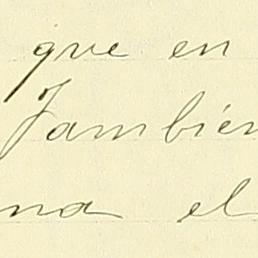 que en
Tambien
na el